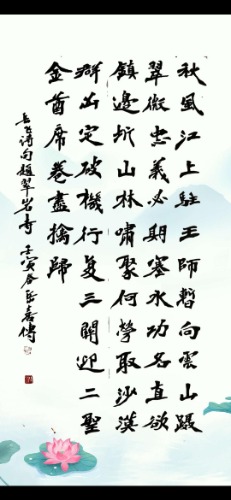 秋風江上駐王師暫向雲山躡
翠微忠義必期塞水功名直欲
鎮邊圻山林嘯聚何勞取沙漠
群凶定破機行复三關迎二聖
金酋席卷盡擒歸
岳飞诗句題翠岩寺 壬寅